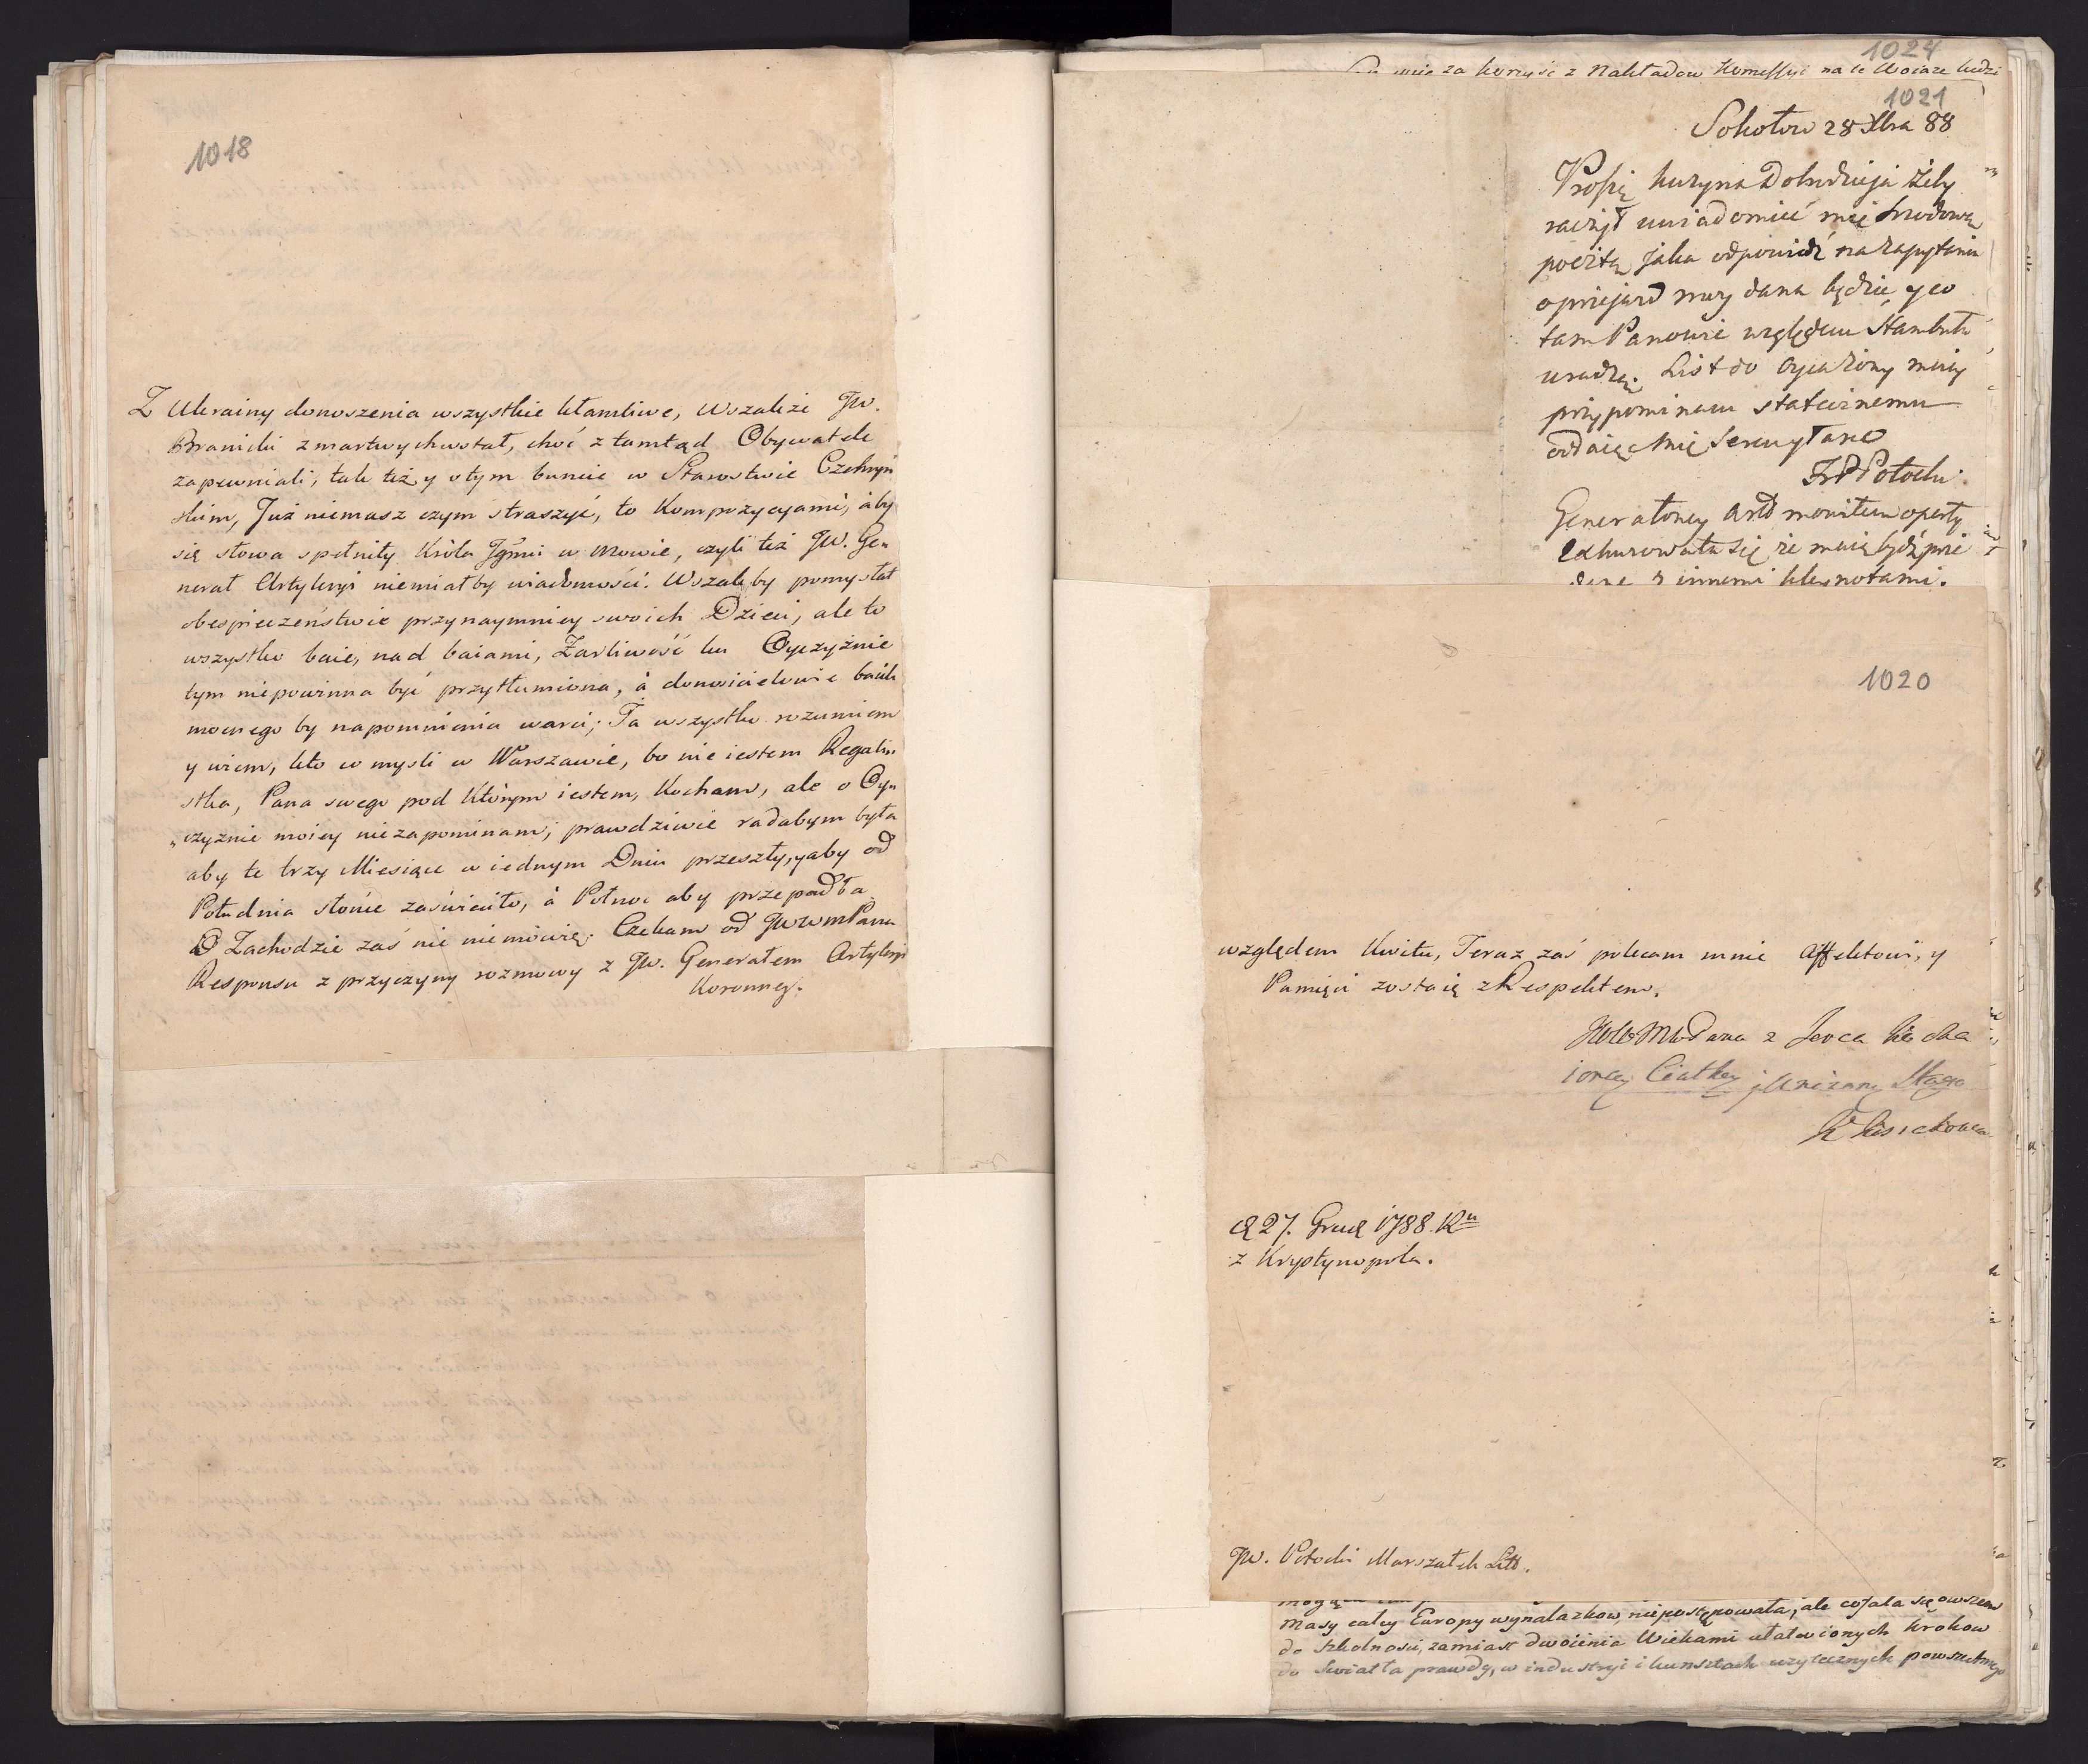 1018
Z Ukrainy donoszenia wszystkie kłamliwe, Wszakże JW.
Branicki zmartwychwstał, choć z tamtąd Obywatele
zapewniali, tak też y otym buncie w Starostwie Czehryń
skim, Już niemasz czym straszyć, to Kompozycyami, aby
się słowa spełniły Króla Jgmci w mowie, czyli też JW. Ge„
nerał Artyleryi niemiałby wiadomości. Wszakby pomyslał
obespieczeństwie przynaymniey swoich Dzieci, ale to
wszystko baie, nad baiami, Zarliwość ku Oyczyźnie
tym niepowinna być przytłumiona, à donosicielowie baiek
mocnego by napomnienia warci; Ja wszystko rozumiem
y wiem, kto co mysli w Warszawie, bo nie iestem Regali„
stka, Pana swego pod którym iestem, Kocham, ale o Oy„
„czyznie moiey niezapominam; prawdziwie radabym była
aby te trzy Miesiące w iednym Dniu przeszły, yaby od
Południa słońce zaświeciło, à Połnoc aby przepadła
O Zachodzie zaś nic niemówię. Czekam od JWWmPana
Responsu z przyczyny rozmowy z JW. Generałem Artyleryi
Koronney.
1024
za korzyść z Nakładow Komissyi na te
1021
Sokołow 28 Xbra 88
Proszę Kuzyna Dobrodzieja żeby
raczył uwiadomić mię środową
pocztą jaka odpowiedź na zapytania
o przejazd mey dana będzie y co
tam Panowie względem Stambułu
uradzą. List do Oyca Żony moiey
przypominam statecznemu
oddaię Mię Sercu y łasce
Potocki.
Generałowey Artł monitem
się że maią bydź prze
z innemi kleynotami.
1020
względem Kwitu, Teraz zaś polecam mnie Affektowi, y
Pamięci zostaię z Respektem.
JWWMPana z Serca kocha
iąncą Ciotką j Uniżoną Sługą
Kossakowska
d 27. Grud 1788. Ru
z Krystynopola.
JW. Potocki Marszałek Litt.
masy całey Europy wynalazkow, niepostępowała, ale cofała się owszem
do szkolności, zamiast dwoienia Wiekami ułatwionych krokow
do Swiatła prawdy, w industryi i kunsztach użytecznych powszechnego